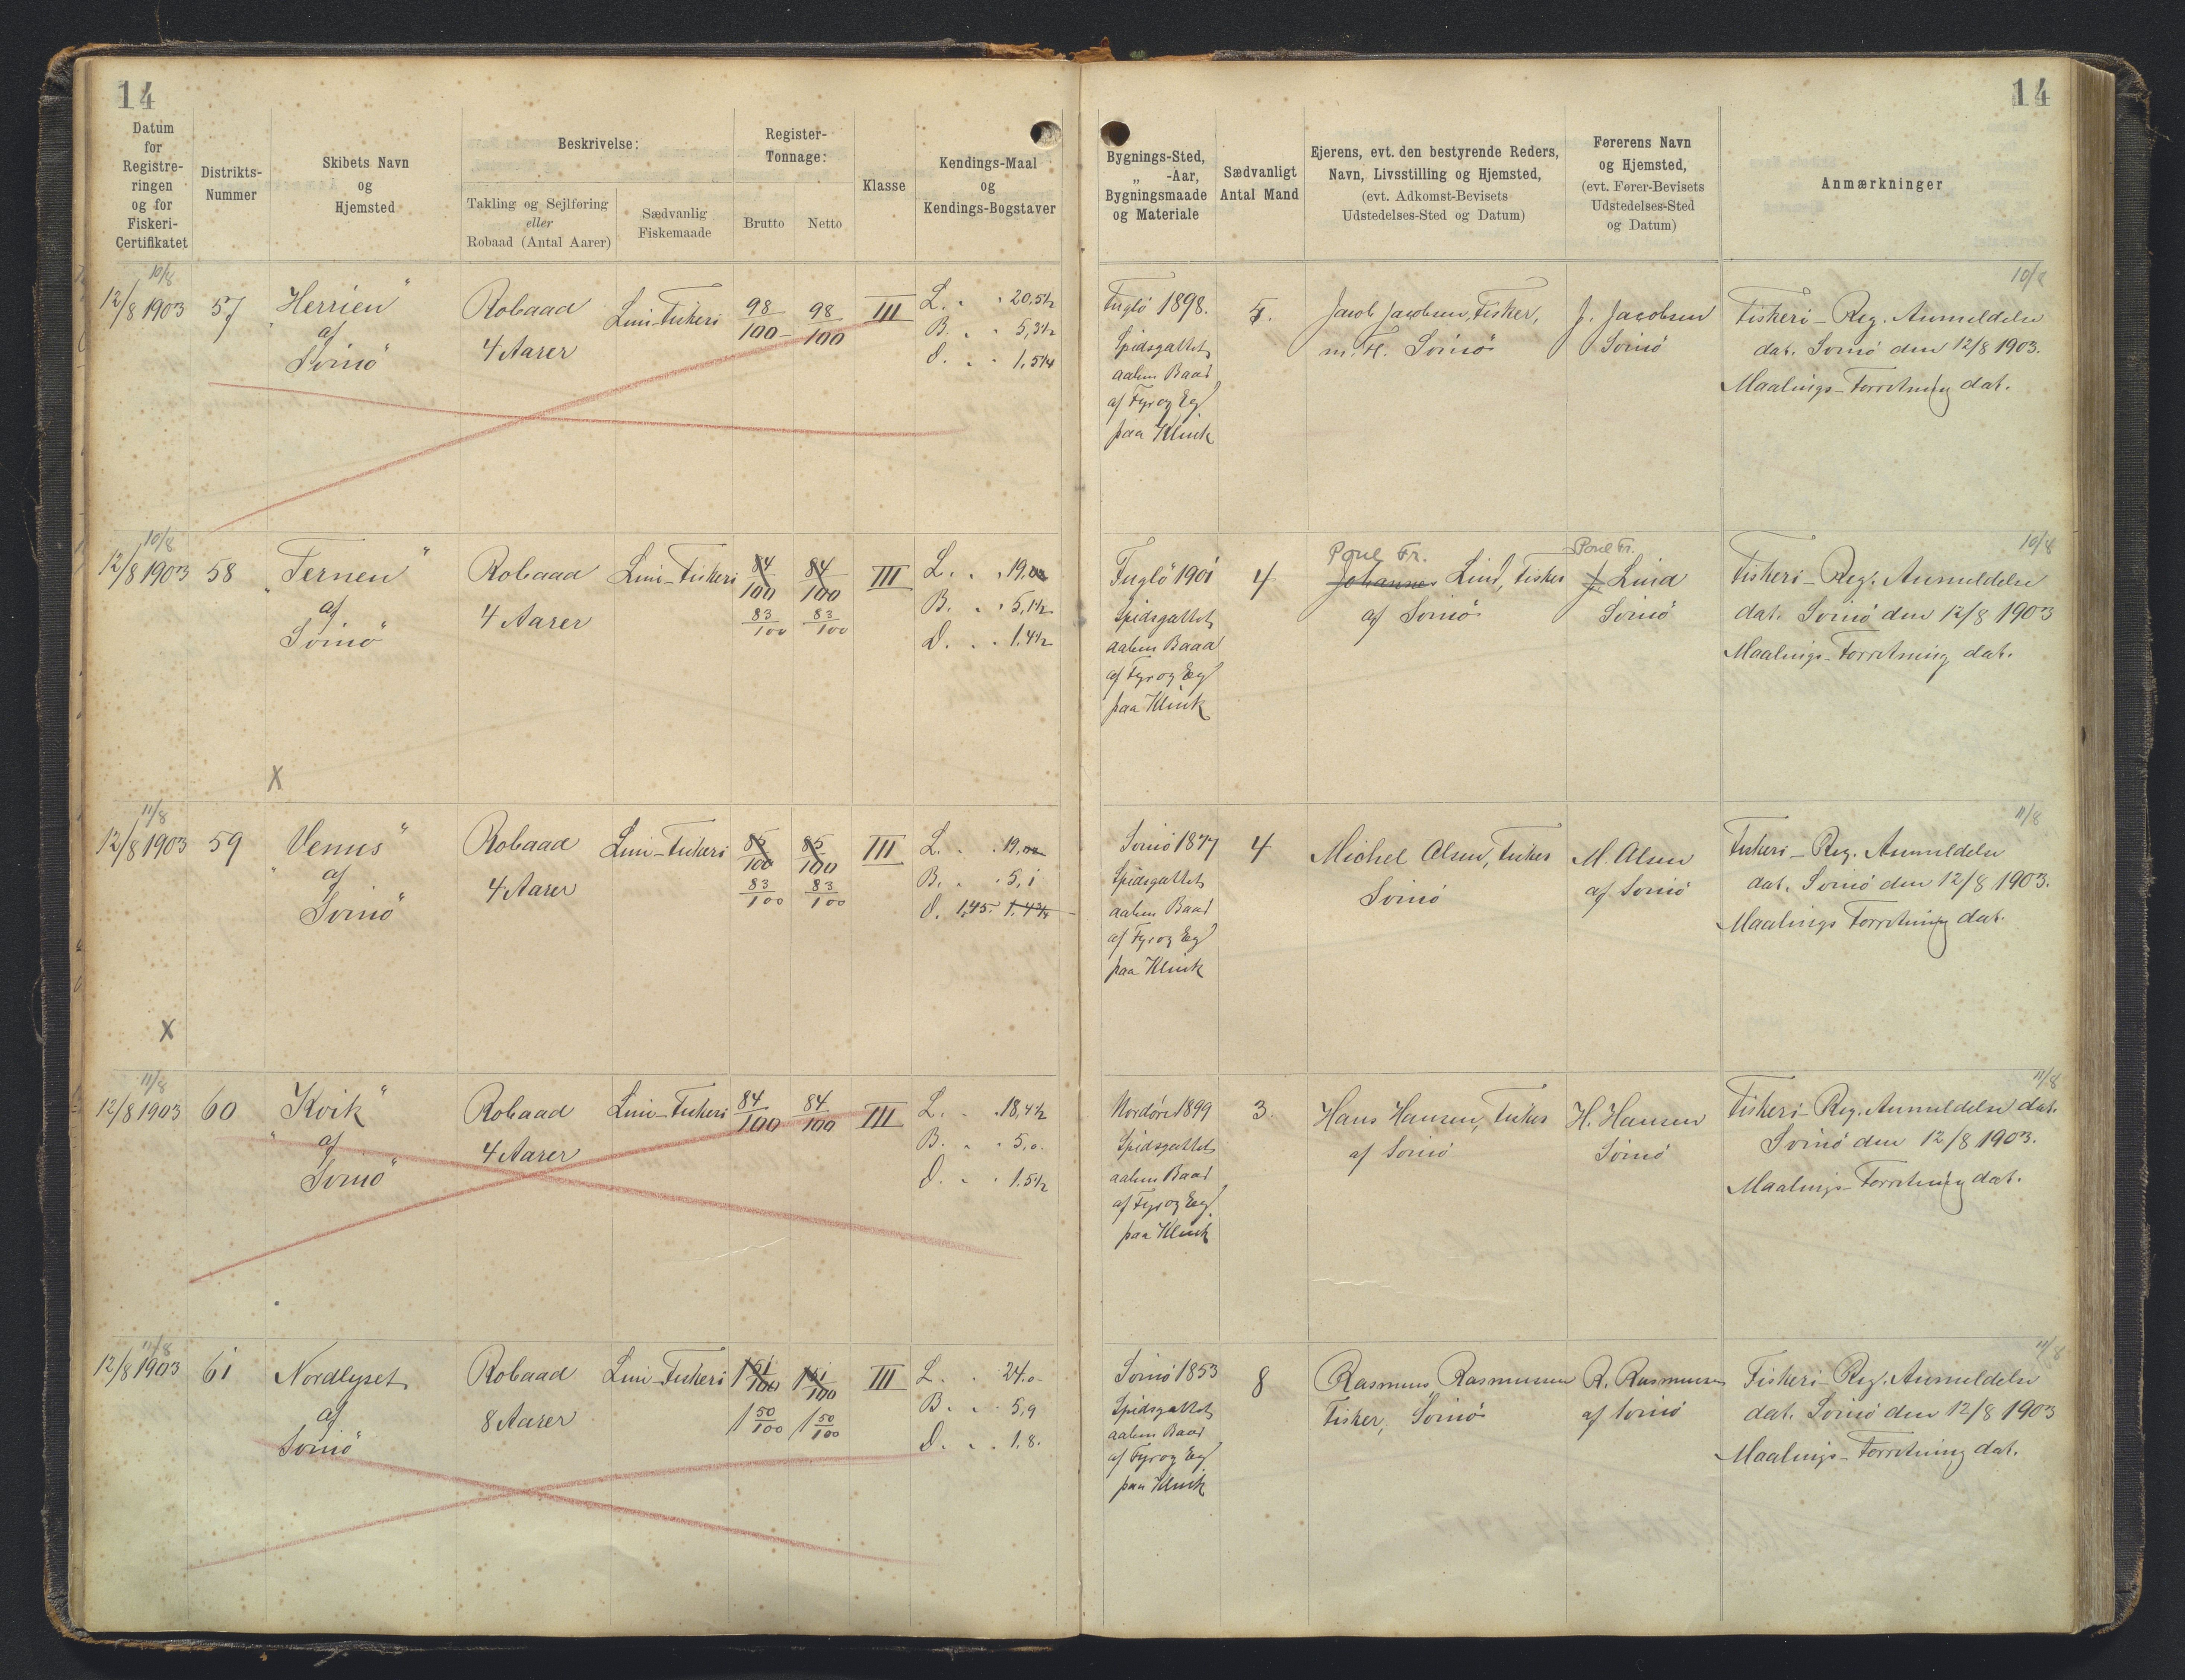 14
14
Datum
for
Registre-
ringen
og for
Fiskeri-
Certifikatet
Distrikts-
Nummer
Skibets Navn
og
Hjemsted
Beskrivelse:
Takling og Sejlføring
eller
Robaad (Antal Aarer)
Sædvanlig
Fiskemaade
Register-
Tonnage:
Brutto
Netto
Klasse
Kendings-Maal
og
Kendings-Bogstaver
Bygnings-Sted,
„ -Aar,
Bygningsmaade
og Materiale
Sædvanligt
Antal Mand
Ejerens, evt. den bestyrende Reders,
Navn, Livsstilling og Hjemsted,
(evt. Adkomst-Bevisets
Udstedelses-Sted og Datum)
Førerens Navn
og Hjemsted,
(evt. Fører-Bevisets
Udstedelses-Sted
og Datum)
Anmærkninger
10/8
12/8 1903
57
af
Svinø
Robaad
4 Aarer
Lini-Fiskeri
98/100
98/100
III
L. . . 20,5½
B. . . 5,3½
D. . . 1,5¼
Fuglø 1898.
Spidsgattet
aaben Baad
af Fyr og Eg
paa Klink
Jacob Jacobsen, Fisker,
Svinø
J. Jacobsen
Svinø
Fiskeri-Reg. Anmeldelse
dat. Svinø den 12/8 1903.
Maalings-Forretning dat.
10/8
12/8 1903
58
„Ternen
af
Svinø“
Robaad
4 Aarer
Lini-Fiskeri
84/100
84/100
83/100
83/100
III
L. . . 19,
B. . . 5,1½
D. . . 1.4½
Fuglø 1901
Spidsgattet
aaben Baad
af Fyr og Eg
paa Klink
4
Poul Fr.
Johannes Lind, Fisker
af Svinø
Poul Fr.
J. Lind
Svinø
10/8
Fiskeri-Reg. Anmeldelse
dat. Svinø den 12/8 1903
Maalings-Forretning dat.
X
11/8
12/8 1903
59
„Venus“
af
Svinø“
Robaad
4 Aarer
Lini-Fiskeri
85/100
85/100
83/100
83/100
III
L. . . 19,
B. . . 5,1
D. 1,45.
Svinø 1877
Spidsgattet
aaben Baad
af Fyr og Eg
paa Klink
4
Michel Olsen, Fisker
Svinø
M. Olsen
af Svinø
11/8
Fiskeri-Reg. Anmeldelse
dat. Svinø den 12/8 1903.
Maalings Forretning dat.
X
11/8
12/8 1903
60
„Kvik“
af
Svinø“
Robaad
4 Aarer
Lini-Fiskeri
84/100
84/100
III
L. . . 18,4½
B. . . 5,0.
D. . . 1.5½
Nordøre 1899
Spidsgattet
aaben Baad
af Fyr og Eg
paa Klink
3.
Hans Hansen, Fisker
af Svinø
H. Hansen
Svinø
11/8
Fiskeri-Reg. Anmeldelse dat.
Svinø den 12/8 1903.
Maalings-Forretning dat.
11/8
12/8 1903
61
Nordlyset
af
Svinø
Robaad
8 Aarer
Lini-Fiskeri
1 50/100
1 50/100
III
L. . . 24.0
B. . . 5,9
D. . . 1.8.
Svinø 1853
Spidsgattet
aaben Baad
af Fyr og Eg
paa Klink
8
Rasmus Rasmussen
Fisker, Svinø
R. Rasmussen
af Svinø
11/8
Fiskeri-Reg. Anmeldelse
dat. Svinø den 12/8 1903
Maalings-Forretning dat.